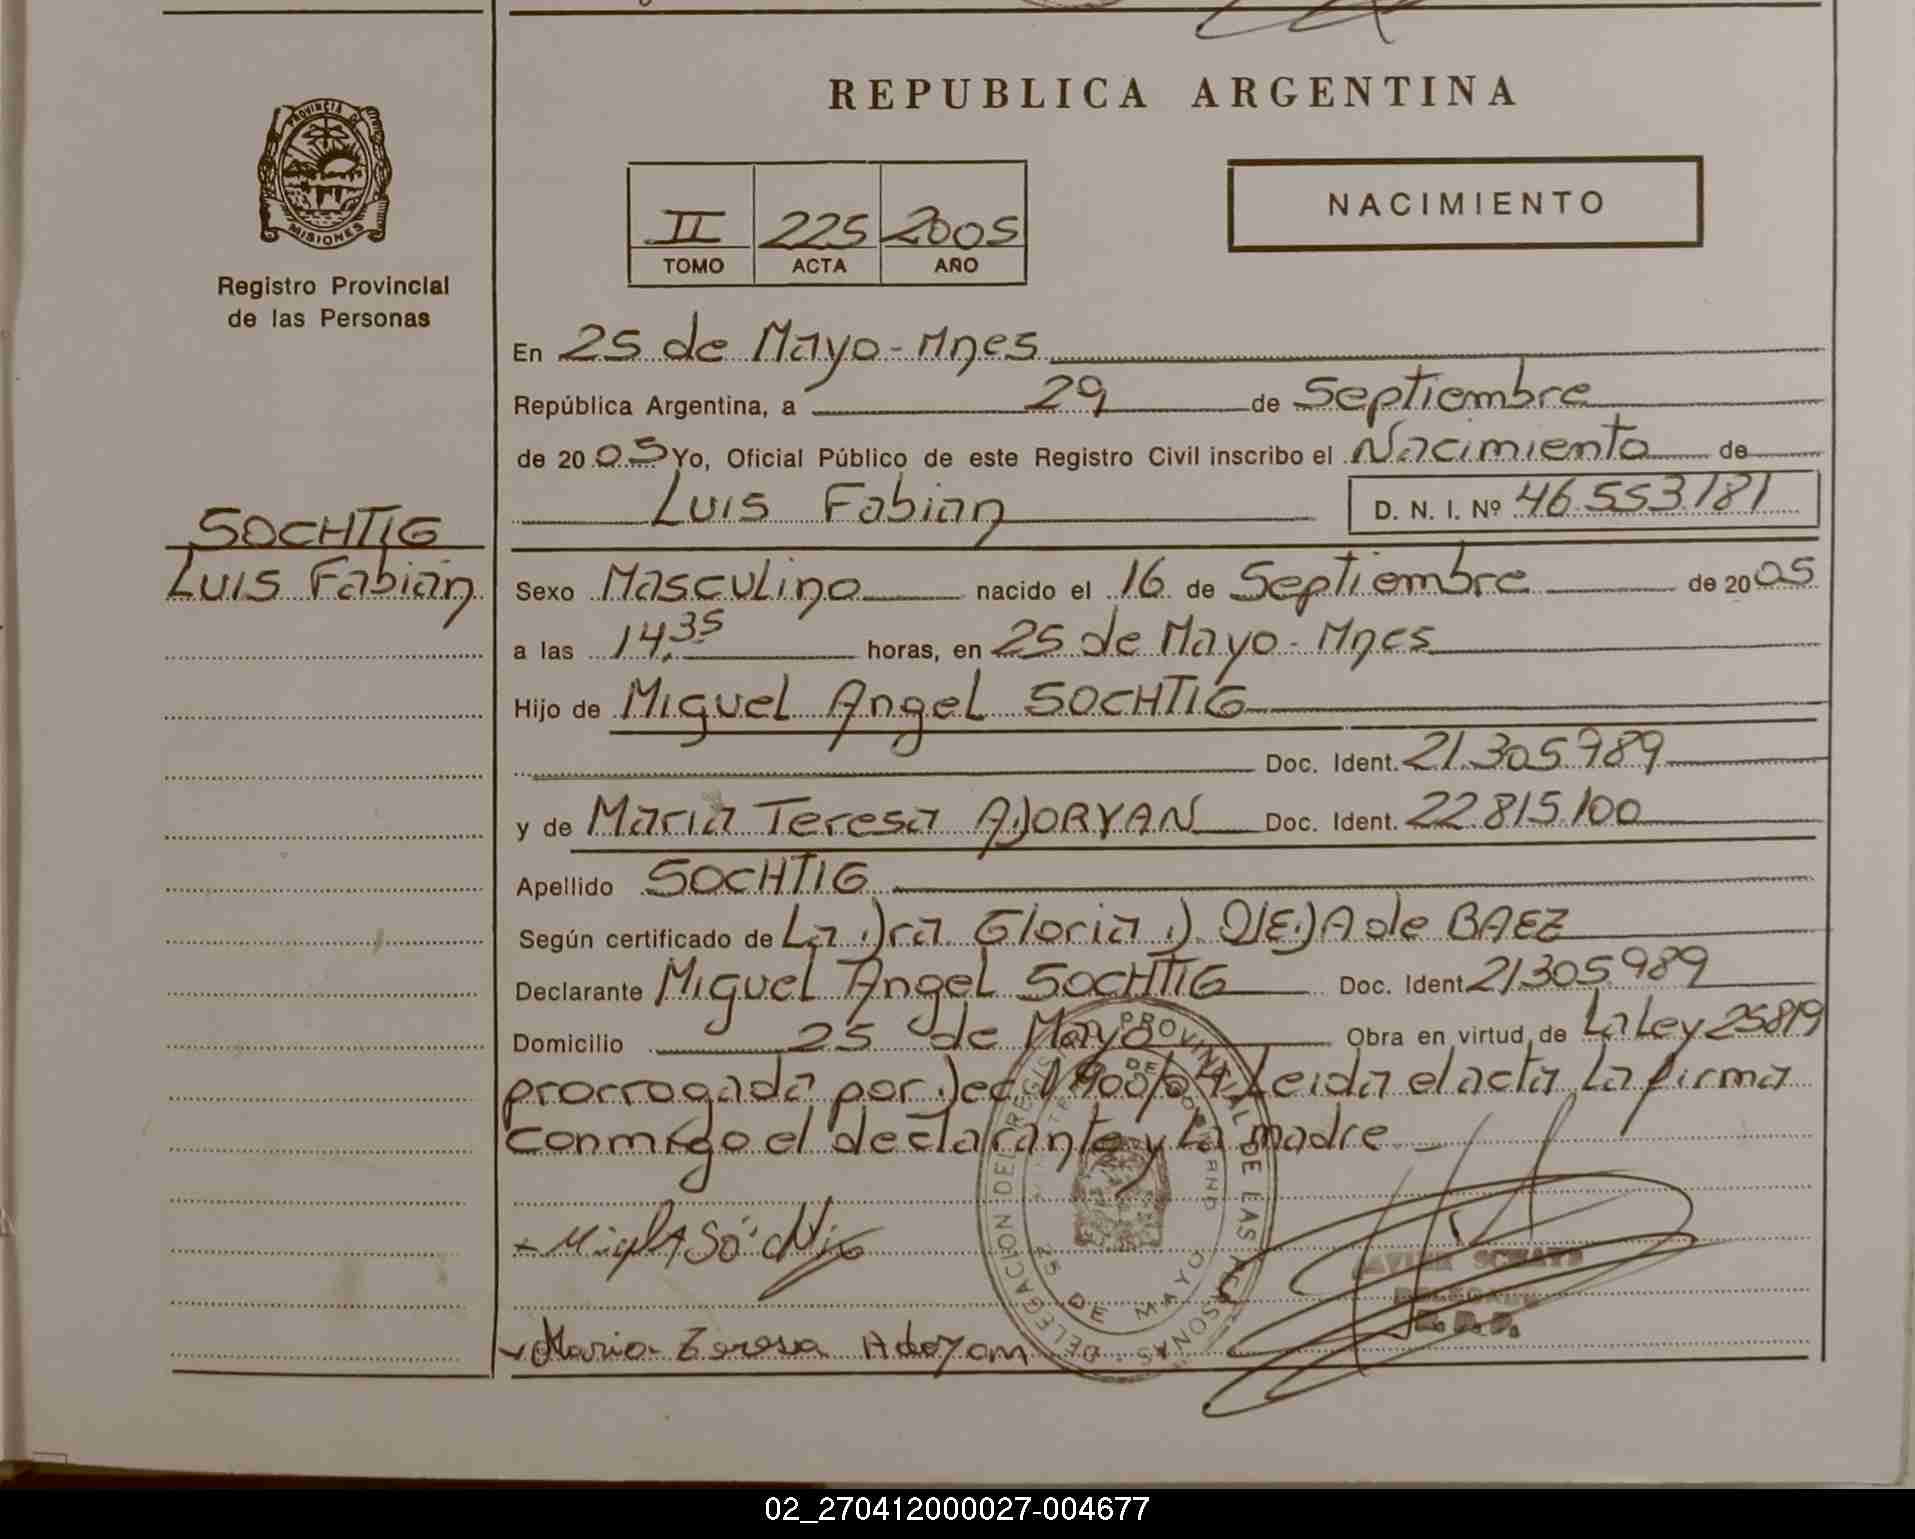 REPUBLICA ARGENTINA
PROVINCIA DE
MISIONES
Registro Provincial
de las Personas
NACIMIENTO
II 225 2005
TOMO ACTA AÑO
En 25 de Mayo - Mnes
República Argentina, a 29 de Septiembre
de 2005 Yo, Oficial Público de este Registro Civil inscribo el Nacimiento de
Luis Fabian D. N. I. Nº 46.553.181
SOCHTIG
Luis Fabian
Sexo Masculino nacido el 16 de Septiembre de 2005
a las 14.35 horas, en 25 de Mayo - Mnes
Hijo de Miguel Angel SOCHTIG
Doc. Ident. 21.305.989
y de Maria Teresa Doc. Ident. 22.815.100
Apellido SOCHTIG
Según certificado de La Dra Gloria de BAEZ
Declarante Miguel Angel SOCHTIG Doc. Ident. 21305989
Domicilio 25 de Mayo Obra en virtud de La Ley 25819
prorrogada por Dec. 1900/04 Leida el acta La firma
conmigo el declarante y La madre
Maria Teresa
DELEGACION DEL REGISTRO PROVINCIAL DE LAS PERSONAS
25 DE MAYO
DELEGADO
R. P. P.
02_270412000027-004677